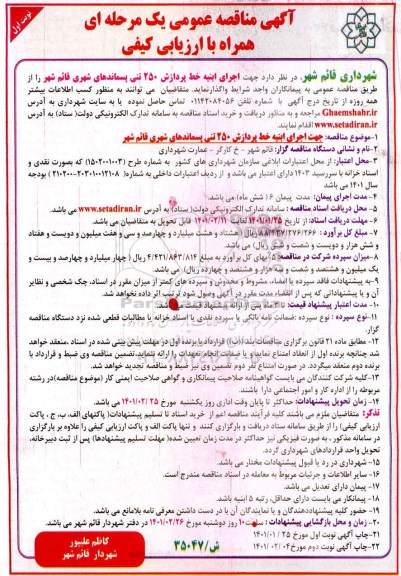 نوبت اول
آگهی مناقصه عمومی یک مرحله ای
همراه با ارزیابی کیفی
شهرداری قائم شهر، در نظر دارد جهت اجرای ابنیه خط پردازش ۲۵۰ تنی پسماندهای شهری قائم شهر را از
طریق مناقصه عمومی به پیمانکاران واجد شرایط واگذارنماید. متقاضیان می توانند به منظور کسب اطلاعات بیشتر
همه روزه از تاریخ درج آگهی با شماره تلفن ۰۱۱۴۲۰۸۴۰۵۶ تماس حاصل نموده یا به سایت شهرداری به آدرس
Ghaemshahr.ir مراجعه و به منظور دریافت و خرید اسناد مناقصه به سامانه تدارک الکترونیکی دولت( ستاد) به آدرس
www.setadiran.ir اقدام نمایند.
۱-موضوع مناقصه: جهت اجرای ابنیه خط پردازش ۲۵۰ تنی پسماندهای شهری قائم شهر
۲-نام و نشانی دستگاه مناقصه گزار: قائم شهر - خ کارگر - عمارت شهرداری
۳-محل اعتبار: از محل اعتبارات ابلاغی سازمان شهرداری های کشور به شماره طرح (۱۵۰۲۰۰۱۰۰۳) که بصورت نقدی و
اسناد خزانه با سررسید ۱۴۰۳ دارای اعتبار می باشد و از ردیف اعتبارات داخلی به شماره( ) بودجه
سال ۱۴۰۱ می باشد
۴-مدت اجرای پیمان: مدت پیمان ۱۶ شش ماه) می باشد.
۵-محل دریافت اسناد مناقصه : سامانه تدارک الکترونیکی دولت( ستاد) به آدرس www.setadiran.ir می باشد.
۶- مهلت دریافت اسناد: از تاریخ ۱۴۰۱/۰۱/۲۵ لغایت ۱۴۰۱/۰۲/۱۱ قابل تحویل به متقاضیان می باشد.
۷-مبلغ کل برآورد : ۸۸/۴۳۷/۲۷۶/۲۶۶ ریال( هشتاد و هشت میلیارد و چهارصد و سی و هفت میلیون و دویست و هفتاد
و شش هزار و دویست و شصت و شش ریال) می باشد.
۸-میزان سپرده شرکت در مناقصه: ۵٪بهای کل برآورد به مبلغ ۴/۴۲۱/۸۶۳/۸۱۴ ریال ( چهار میلیارد و چهارصد و بیست و
یک میلیون و هشتصد و شصت و سه هزار و هشتصد و چهارده ریال) می باشد.
۹-به پیشنهادات فاقد سپرده یا امضاء، مشروط و مخدوش و سپرده های کمتر از میزان مقرر در اسناد، چک شخصی و نظایر
آن و یا پیشنهاداتی که پس از انقضاء مدت مقرر در آگهی وصول شود ترتیب اثر داده نخواهد شد.
۱۰-مدت اعتبار پیشنهاد قیمت :
۱۱-نوع سپرده : نوع سپرده :ضمانت نامه بانکی یا سپرده نقدی یا اسناد خزانه یا مطالبات قطعی شده نزد دستگاه مناقصه
گزار.
۱۲- مطابق ماده ۲۱ قانون برگزاری مناقصات بند(ب)) قرارداد با برنده اول در مهلت پیش بینی شده در اسناد ،منعقد خواهد
شد چنانچه برنده اول از انعقاد امتناع نماید و یا ضمانت انجام تعهدات را ارائه ننماید،تضمین مناقصه وی ضبط و قرارداد با
برنده دوم منعقد میگردد. در صورت امتناع نفر دوم تضمین وی نیز ضبط و مناقصه تجدید خواهد شد.
۱۳-کلیه شرکت کنندگان می بایست گواهینامه صلاحیت پیمانکاری و گواهی صلاحیت ایمنی کار (موضوع مناقصه)در رشته
مربوطه را از اداره کار و امور اجتماعی دارا باشند.
۱۴-زمان تحویل پیشنهادات: حداکثر تا پایان وقت اداری روز یکشنبه مورخ ۱۴۰۱/۰۲/۲۵ می باشد.
تذکر: متقاضیان ملزم می باشند کلیه فرآیند مناقصه اعم از خرید اسناد تا تسلیم پیشنهادات( پاکتهای الف، ب، ج ، پاکت
ارزیابی کیفی) را از طریق سامانه ستاد دریافت و بارگزاری کنند و تنها پاکت الف و پاکت ارزیابی کیفی را علاوه بر بارگزاری
در سامانه مذکور ، به صورت فیزیکی نیز حداکثر در مدت زمان تعیین شده( مهلت تسلیم پیشنهادها) پس از ثبت دبیرخانه،
تحویل واحد قراردادهای شهرداری گردد.
۱۵-شهرداری در رد یا قبول پیشنهادات مختار می باشد.
۱۶- سایر اطلاعات و جزئیات مربوط به معامله در اسناد مناقصه مندرج است.
۱۷-پیمان دارای تعدیل می باشد.
۱۸-پیمانکار می بایست دارای حداقل، رتبه ۵ ابنیه باشد.
۱۹-حضور کلیه پیشنهاددهندگان و یا نمایندگان آن با در دست داشتن معرفی نامه بلامانع می باشد.
۲۰- زمان و محل بازگشایی پیشنهادات : ساعت ۱۰ روز دوشنبه مورخ ۱۴۰۱/۰۲/۲۶ در دفتر شهردار قائم شهر می باشد.
۲۱-چاپ آگهی نوبت اول مورخ ۱۴۰۱/۰۱/۲۵
۲۲-چاپ آگهی نوبت دوم مورخ ۱۴۰۱/۰۲/۰۴
ش/۳۵۰۴۷
کاظم علیپور
شهردار قائم شهر